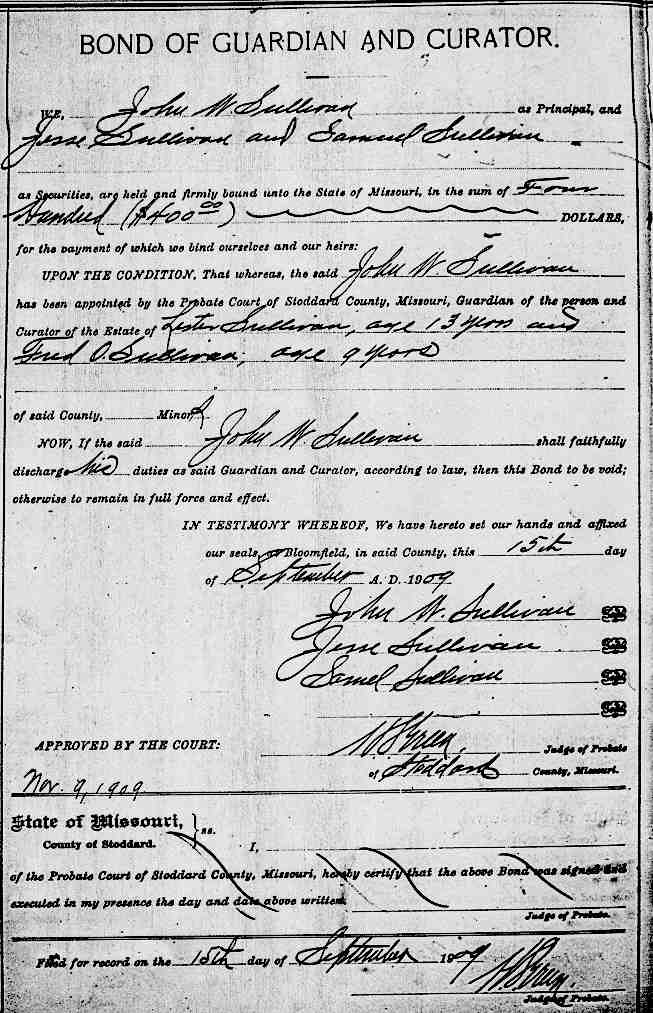 BOND OF GUARDIAN AND CURATOR.
WE, John W Sullivan as Principal, and
Jesse Sullivan and Samuel Sullivan
as Securities, are held and firmly bound unto the State of Missouri, in the sum of Four
Hundred ($400.00) DOLLARS,
for the payment of which we bind ourselves and our heirs:
UPON THE CONDITION, That whereas, the said John W. Sullivan
has been appointed by the Probate Court of Stoddard County, Missouri, Guardian of the person and
Curator of the Estate of Lester Sullivan, age 13 years and
Fred O. Sullivan, age 9 years
of said County, Minors
NOW, If the said John W. Sullivan shall faithfully
discharge his duties as said Guardian and Curator, according to law, then this Bond to be void;
otherwise to remain in full force and effect.
IN TESTIMONY WHEREOF, We have hereto set our hands and affixed
our seals, at Bloomfield, in said County, this 15th day
of September A. D. 1909
John W. Sullivan Seal
Jesse Sullivan Seal
Samel Sullivan Seal
Seal
APPROVED BY THE COURT: Judge of Probate
of Stoddard County, Missouri.
Nov. 9, 1909
State of Missouri, } ss.
County of Stoddard. I,
of the Probate Court of Stoddard County, Missouri, hereby certify that the above Bond was signed and
executed in my presence the day and date above written.
Judge of Probate.
Filed for record on the 15th day of September 1909
Judge of Probate.